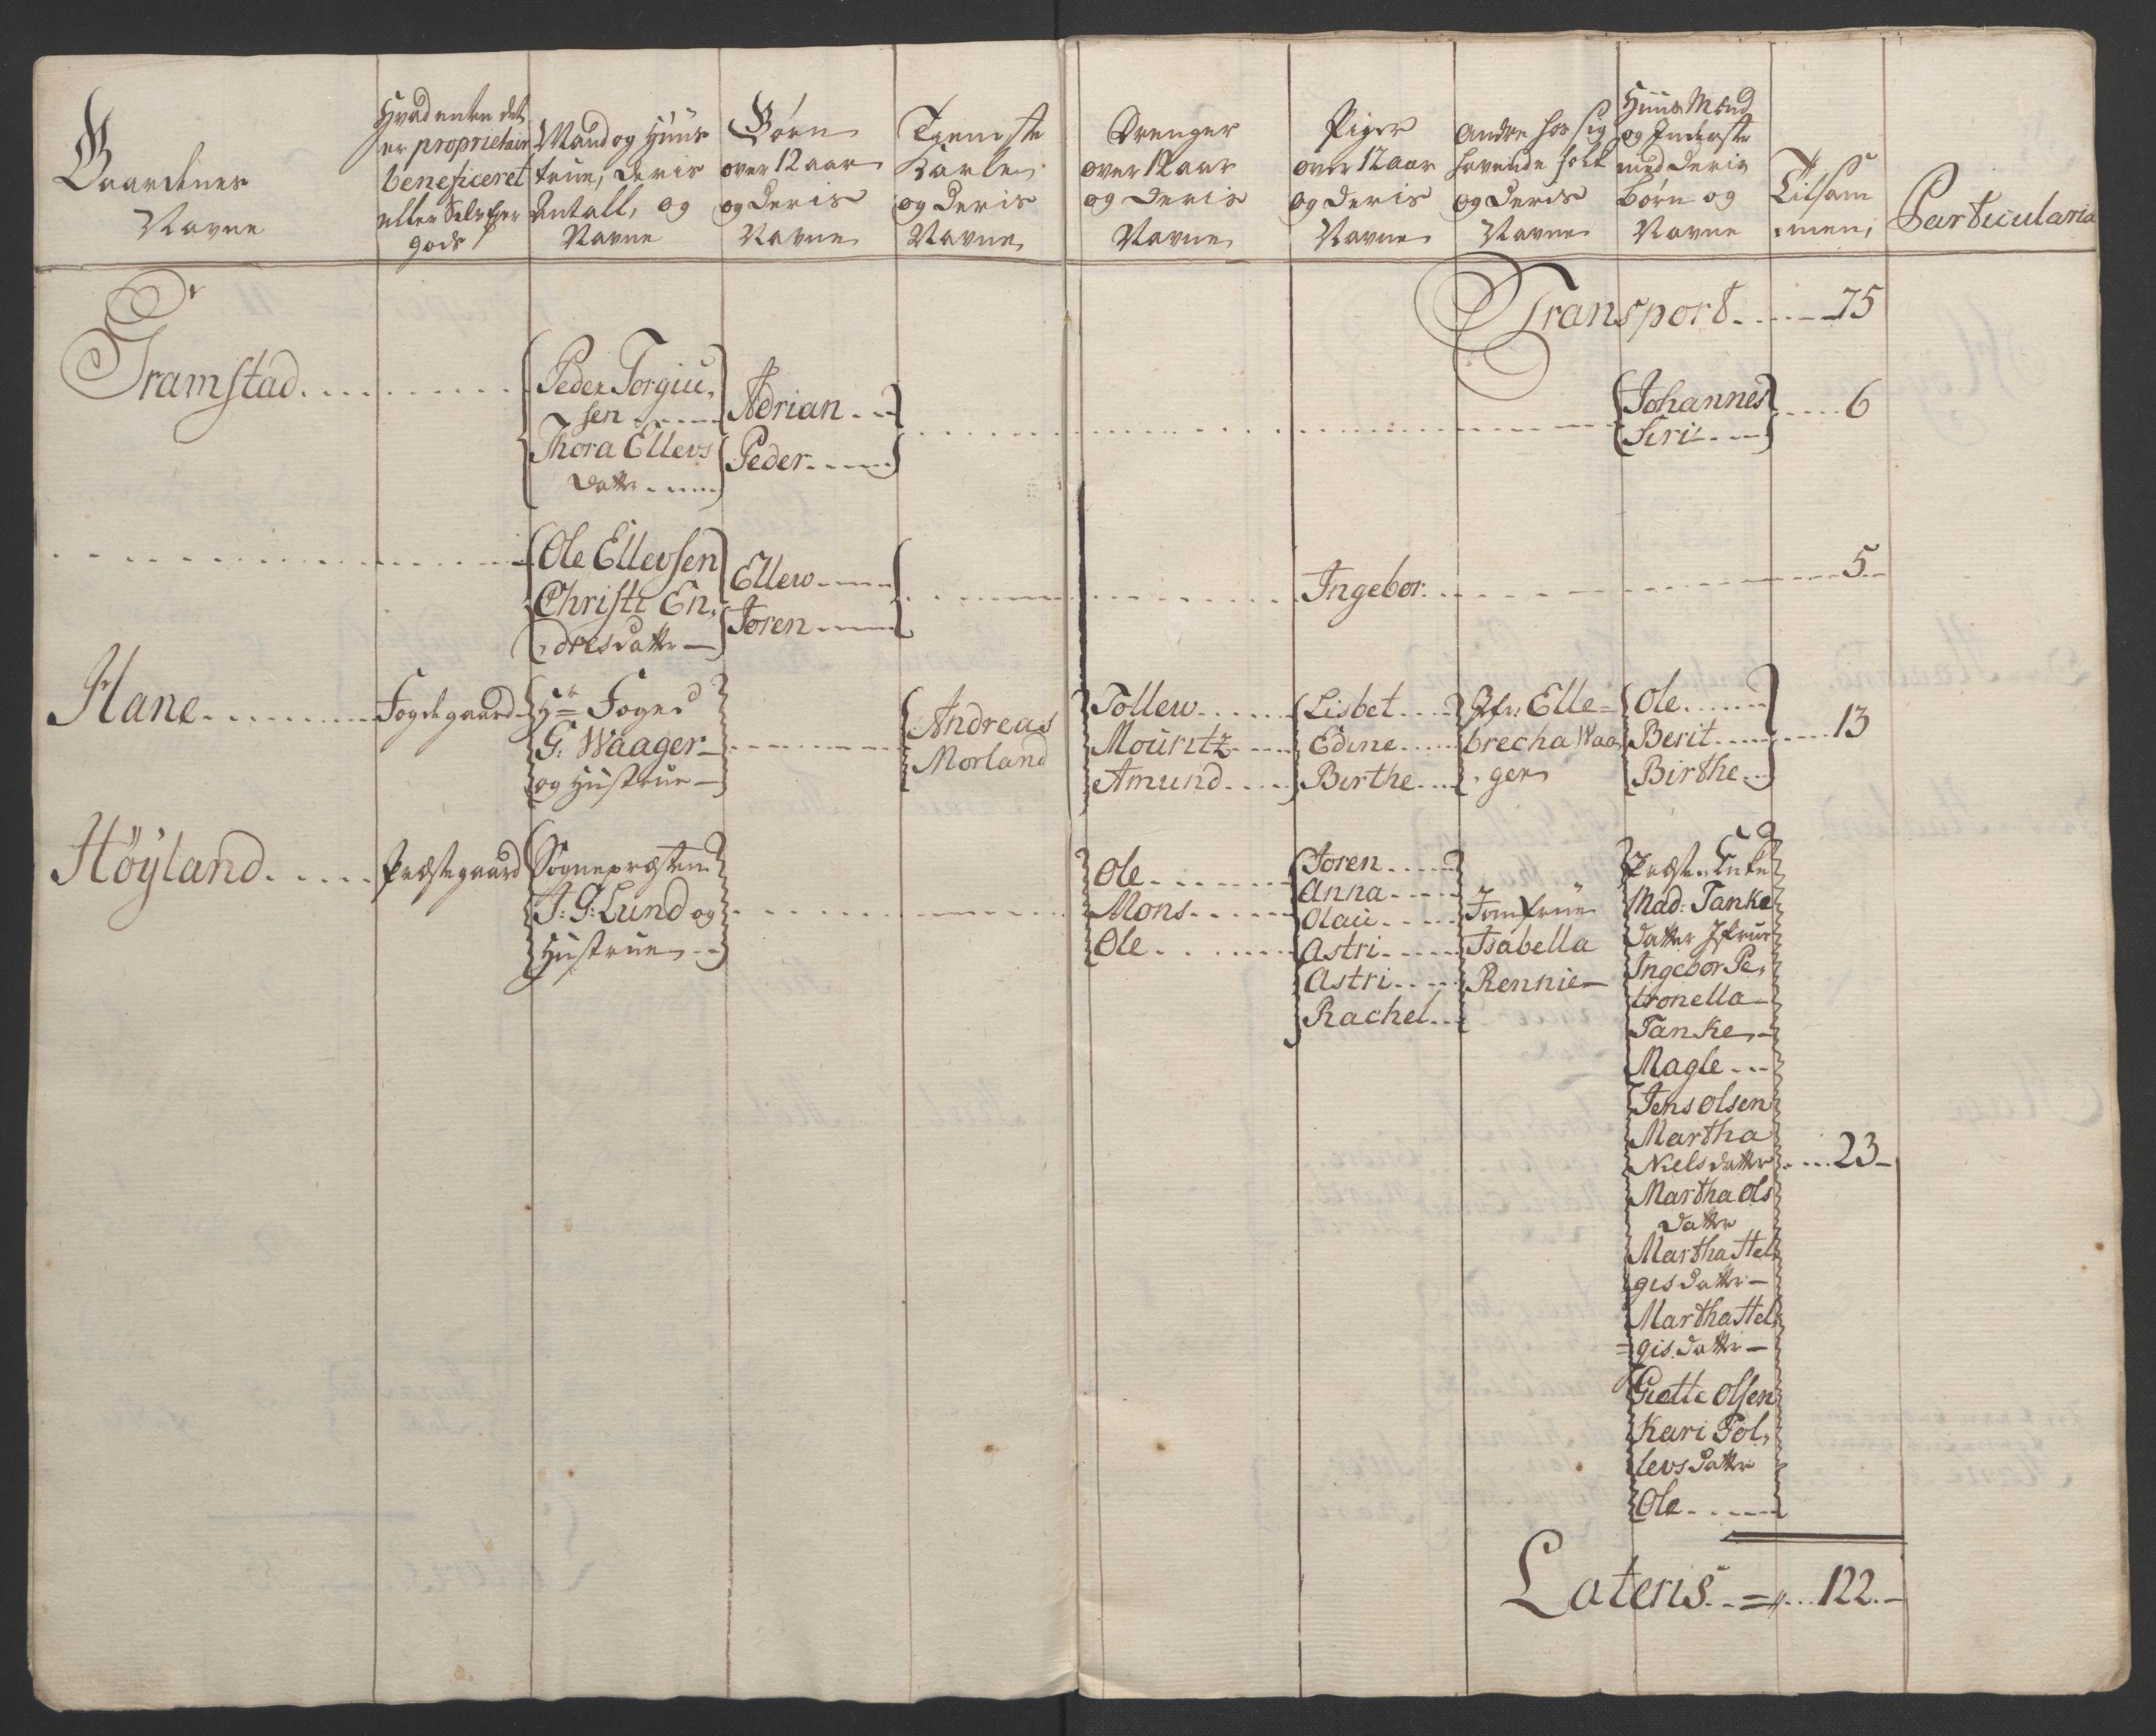 Gaardenes
Navne
Hvad enten det
er proprietair
beneficeret
eller Selv Ejer
gods
Mand og Huus
true, deris
Antall, og
Navne
Børn
over 12 aar
og deris
Navne
Tieneste
Karle
og deris
Navne
Drenger
over 12 aar
og deris
Navne
Piger
over 12 aar
og deris
Navne
Andre hos sig
havende folk
og deris
Navne
Huus Mænd
og Inderste
med deris
børn og
Navne
Tilsam
men,
Particularia
Transport 75
Gramstad
Peder Torgiu,
sen
Thora Ellevs
datter
Adrian
Peder
Johannes
Siri
6
Ole Ellevsen
Christi En,
dresdatter
Ellew
Joren
Ingebor
5
Hane
Fogdegaard
Hr Foged
G: Waager
og Hustrue
Andreas
Morland
Tollew
Mouritz
Amund
Lisbet
Edine
Birthe
Jfr: Elle=
brecha Waa
ger
Ole
Berit
Birthe
13
Höyland
Præstegaard
Sognepræsten
J: G: Lund og
Hustrue
Ole
Mons
Ole
Joren
Anna
Olau
Astri
Astri
Rachel
Jomfrue
Isabella
Rennie
Præste Enke
Mad: Tanke
datter Jfrue
Ingebor Pe,
tronella
Tanke
Magle
Jens Olsen
Martha
Nielsdatter
Martha Ols
datter
Martha Hel
gisdatter
Martha Hel
=gisdatter
Giette Olsen
Kari Tol,
levsdatter
Ole
23
Lateris 122